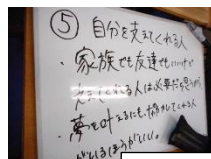 ⑤ 自分を支えてくれる人
・家族でも友達でもいいけど
支えてくれる人は必要だと思うから
・夢を叶えるにも、してくれる人
がいるほうがいい。